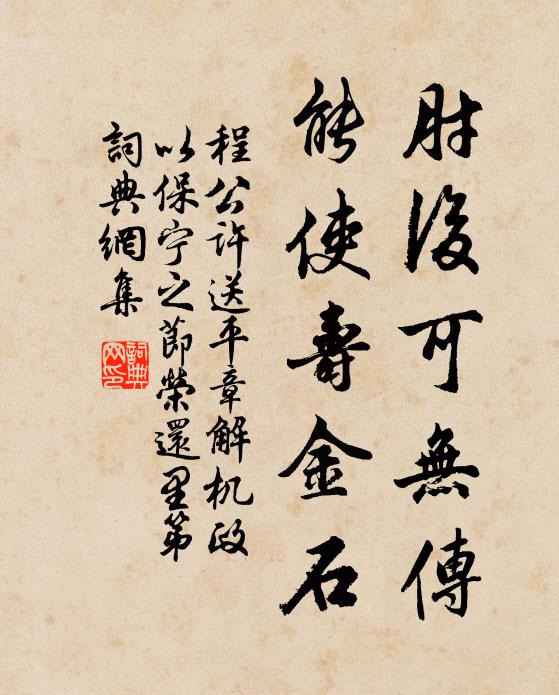 肘後可無傳
能使壽金石
程公許送平章解机政
以保宁之節榮還里第
詞典網集
詞典
网印